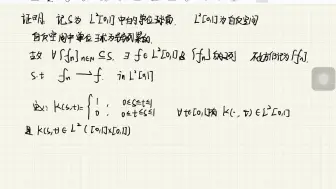 证明: 记S为 L²[0,1] 中的单位球面, L²[0,1]为自反空间
自反空间中单位球为弱列紧的.
故 ∀{fₙ}ₙ∈ℕ ⊆ S, ∃ f∈L²[0,1] 及 {fₙ}的子列 不妨仍记为{fₙ}.
s.t fₙ ⇀ f. in L²[0,1]
定义: K(s,t) = { 1 : 0≤s≤t≤1 ∀t∈[0,1] K(·,t)∈L²[0,1]
0 : 0≤t≤s≤1
且 K(s,t)∈L²([0,1]×[0,1])